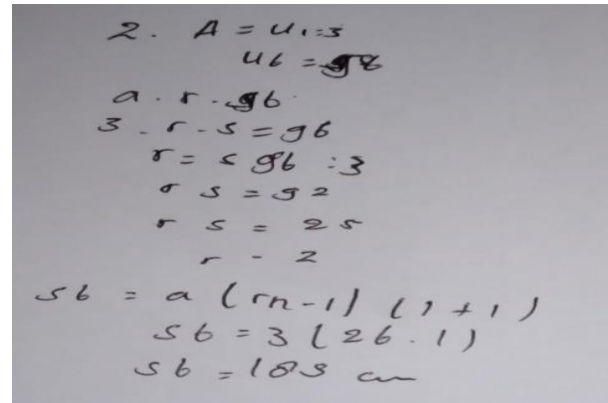 2. A = U1=3
U6 = 96
a . r . 96
3 . r . 5 = 96
r = 5 96 : 3
r 5 = 92
r 5 = 25
r - 2
S6 = a (rn-1) (1+1)
S6 = 3 (26.1)
S6 = 189 cm